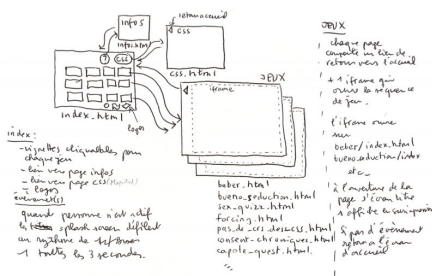 infos
infos.html
retour accueil
css
?
CSS
css.html
index.html
logos
JEUX
iframe
index :
- vignettes cliquables pour
chaque jeu
- lien vers page infos
- lien vers page CSS
- logos
évènement(s)
quand personne n'est actif
les splash screen défilent
au rythme de
1 toutes les 3 secondes.
beber.html
bueno_seduction.html
sex_quizz.html
forcing.html
pas_de_crs_desecss.html
consent-chroniques.html
capote_quest.html.
JEUX
chaque page
comporte un lien de
retour vers l'accueil
+ 1 iframe qui
ouvre la séquence
de jeu.
l'iframe ouvre
sur
beber/index.html
bueno_seduction/index
etc
à l'ouverture de la
page l'écran titre
s'affiche en surimpression
si pas d'évènement
retour à l'écran
d'accueil